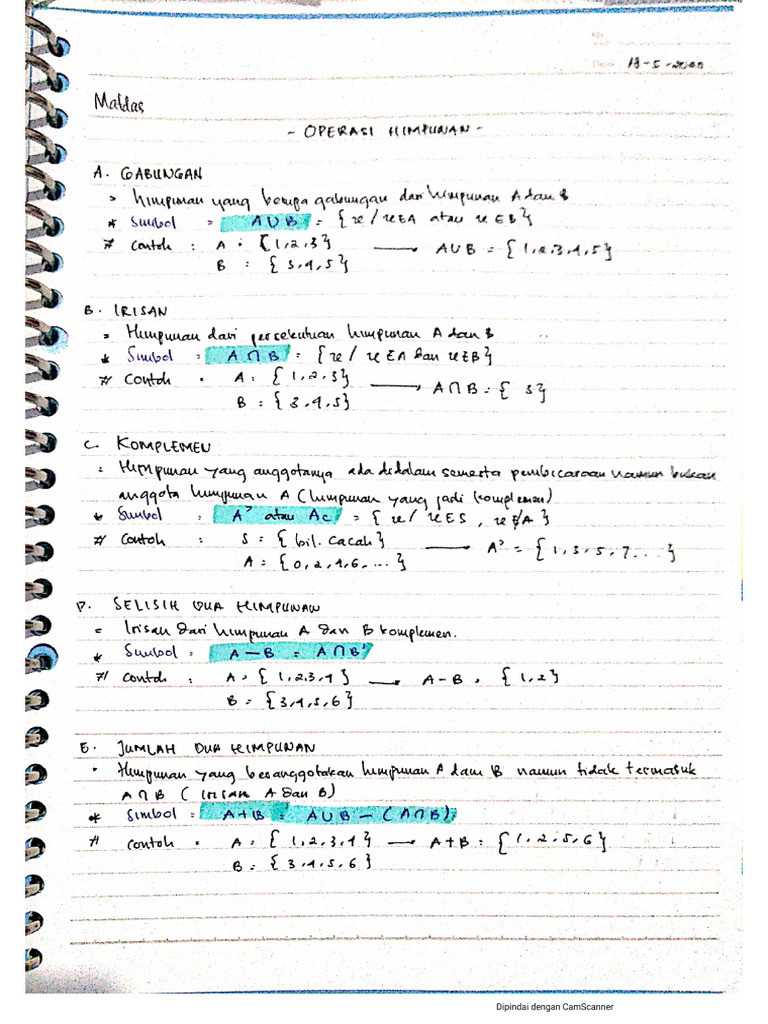 Matdas
- OPERASI HIMPUNAN -
A. GABUNGAN
> himpunan yang berupa gabungan dari himpunan A dan B
* Simbol = A∪B = {x / x ∈ A atau x ∈ B}
# Contoh : A = {1,2,3} → A∪B = {1,2,3,4,5}
B = {3,4,5}
B. IRISAN
= Himpunan dari persekutuan himpunan A dan B
* Simbol = A∩B = {x / x ∈ A dan x ∈ B}
# Contoh • A = {1,2,3} → A∩B = {3}
B = {3,4,5}
C. KOMPLEMEN
= Himpunan yang anggotanya ada didalam semesta pembicaraan namun bukan
anggota himpunan A (himpunan yang jadi komplemen)
* Simbol = A' atau Ac = {x / x ∈ S, x ∉ A}
# Contoh : S = {bil. cacah} → A' = {1,3,5,7...}
A = {0,2,4,6,...}
D. SELISIH DUA HIMPUNAN
= Irisan dari himpunan A dan B komplemen.
* Simbol = A – B = A∩B'
# contoh : A = {1,2,3,4} → A – B = {1,2}
B = {3,4,5,6}
E. JUMLAH DUA HIMPUNAN
• Himpunan yang beranggotakan himpunan A dam B namun tidak termasuk
A∩B (irisan A dan B)
* Simbol = A+B = A∪B – (A∩B)
# contoh • A = {1,2,3,4} → A+B = {1,2,5,6}
B = {3,4,5,6}
Dipindai dengan CamScanner